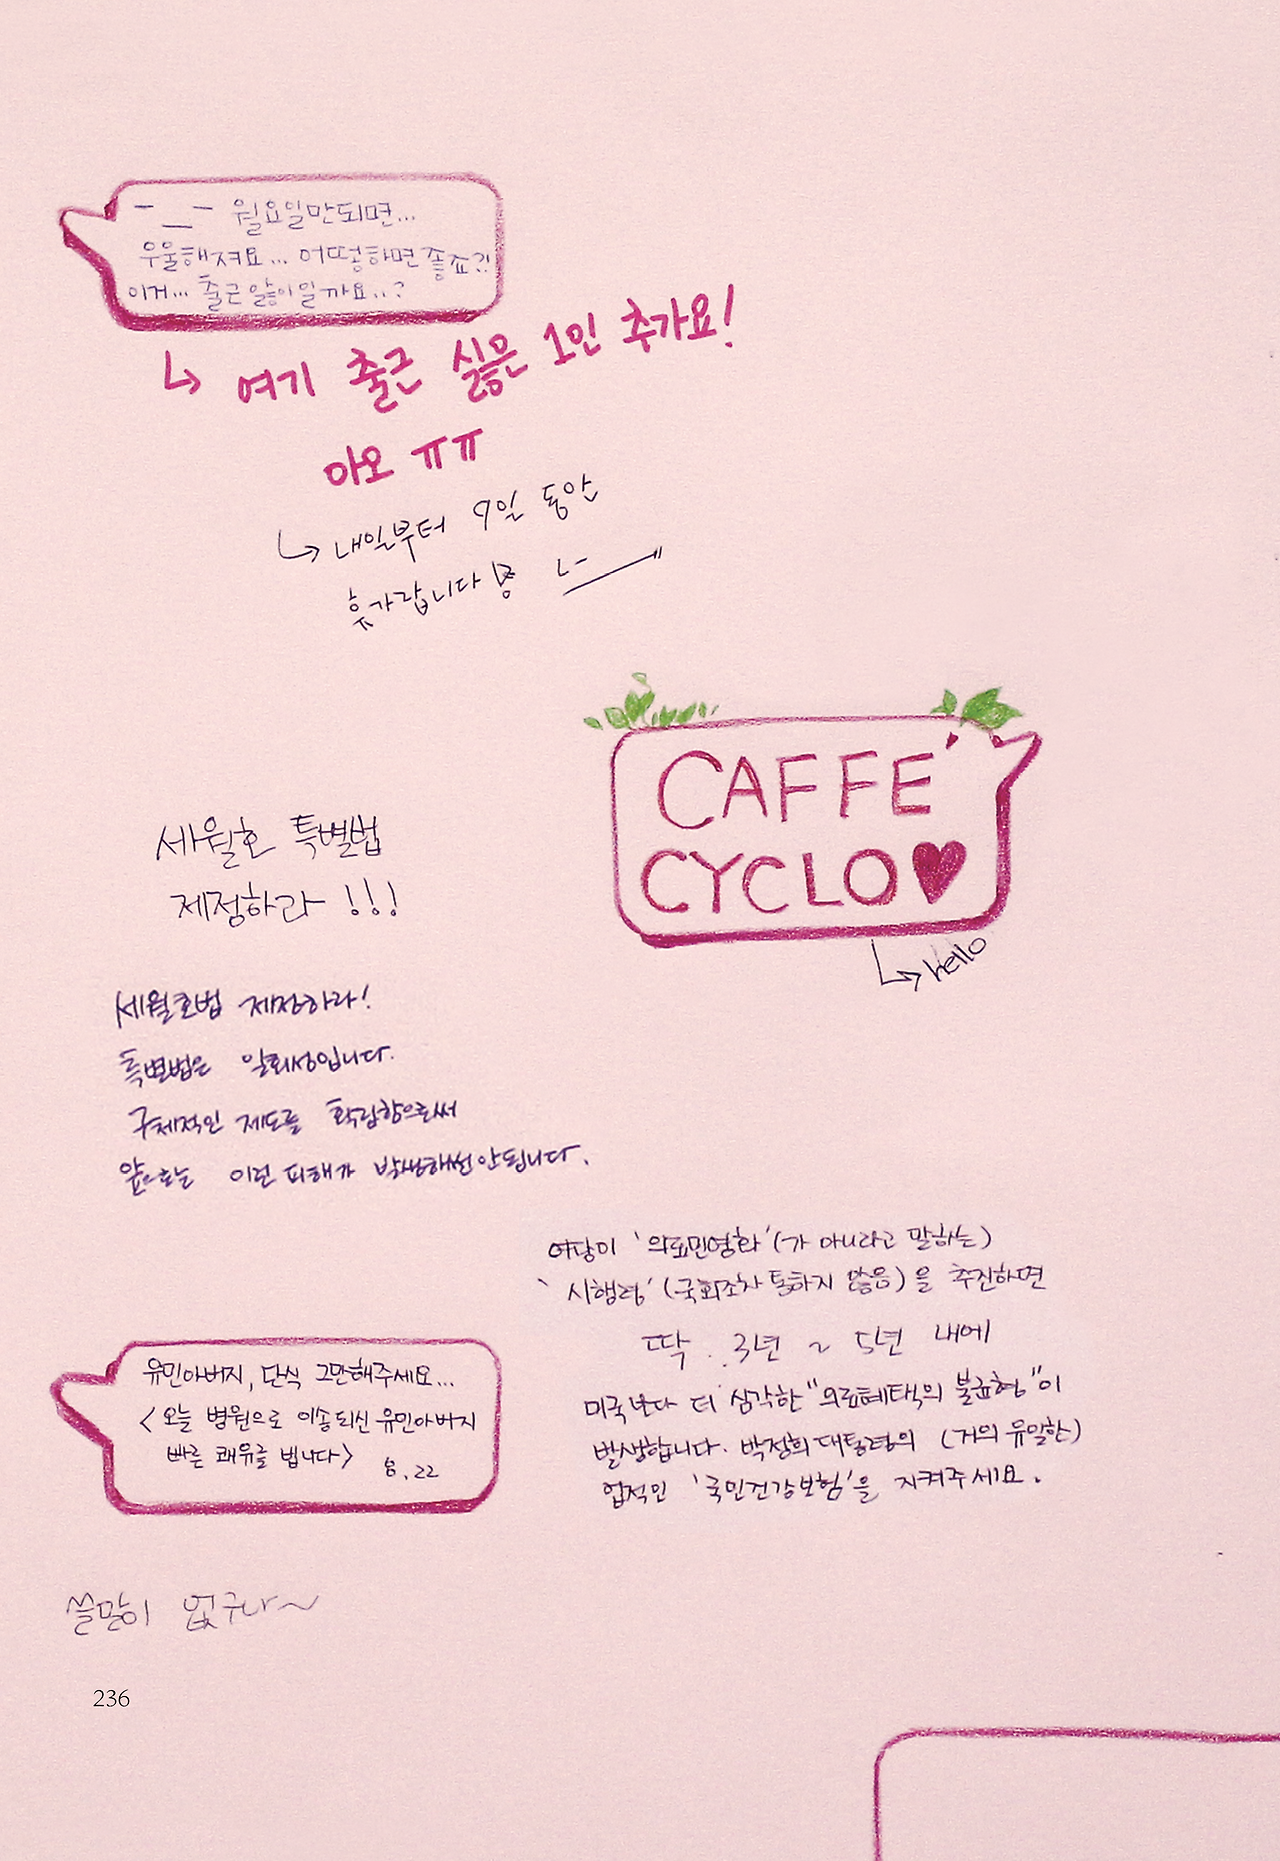 ㅡ_ㅡ 월요일만되면...
우울해져요... 어떻하면좋죠?!
이거... 출근앓이일까요..?
↳ 여기 출근 싫은 1인 추가요!
아오 ㅠㅠ
↳ 내일부터 9일 동안
휴가갑니다
CAFFE'
CYCLO♥
↳ hello
세월호 특별법
제정하라 !!!
세월호법 제정하라!
특별법은 일회성입니다.
구체적인 제도를 확립함으로써
앞으로는 이런 피해가 발생해선안됩니다.
여당이 '의료민영화'(가 아니라고 말하는)
'시행령'(국회조차 통하지 않음)을 추진하면
딱. 3년 ~ 5년 내에
미국보다 더 심각한 "의료혜택의 불균형"이
발생합니다. 박정희대통령의 (거의 유일한)
업적인 '국민건강보험'을 지켜주세요.
유민아버지, 단식 그만해주세요...
<오늘 병원으로 이송되신 유민아버지
빠른 쾌유를 빕니다> 8.22
쓸말이 없구나~
236